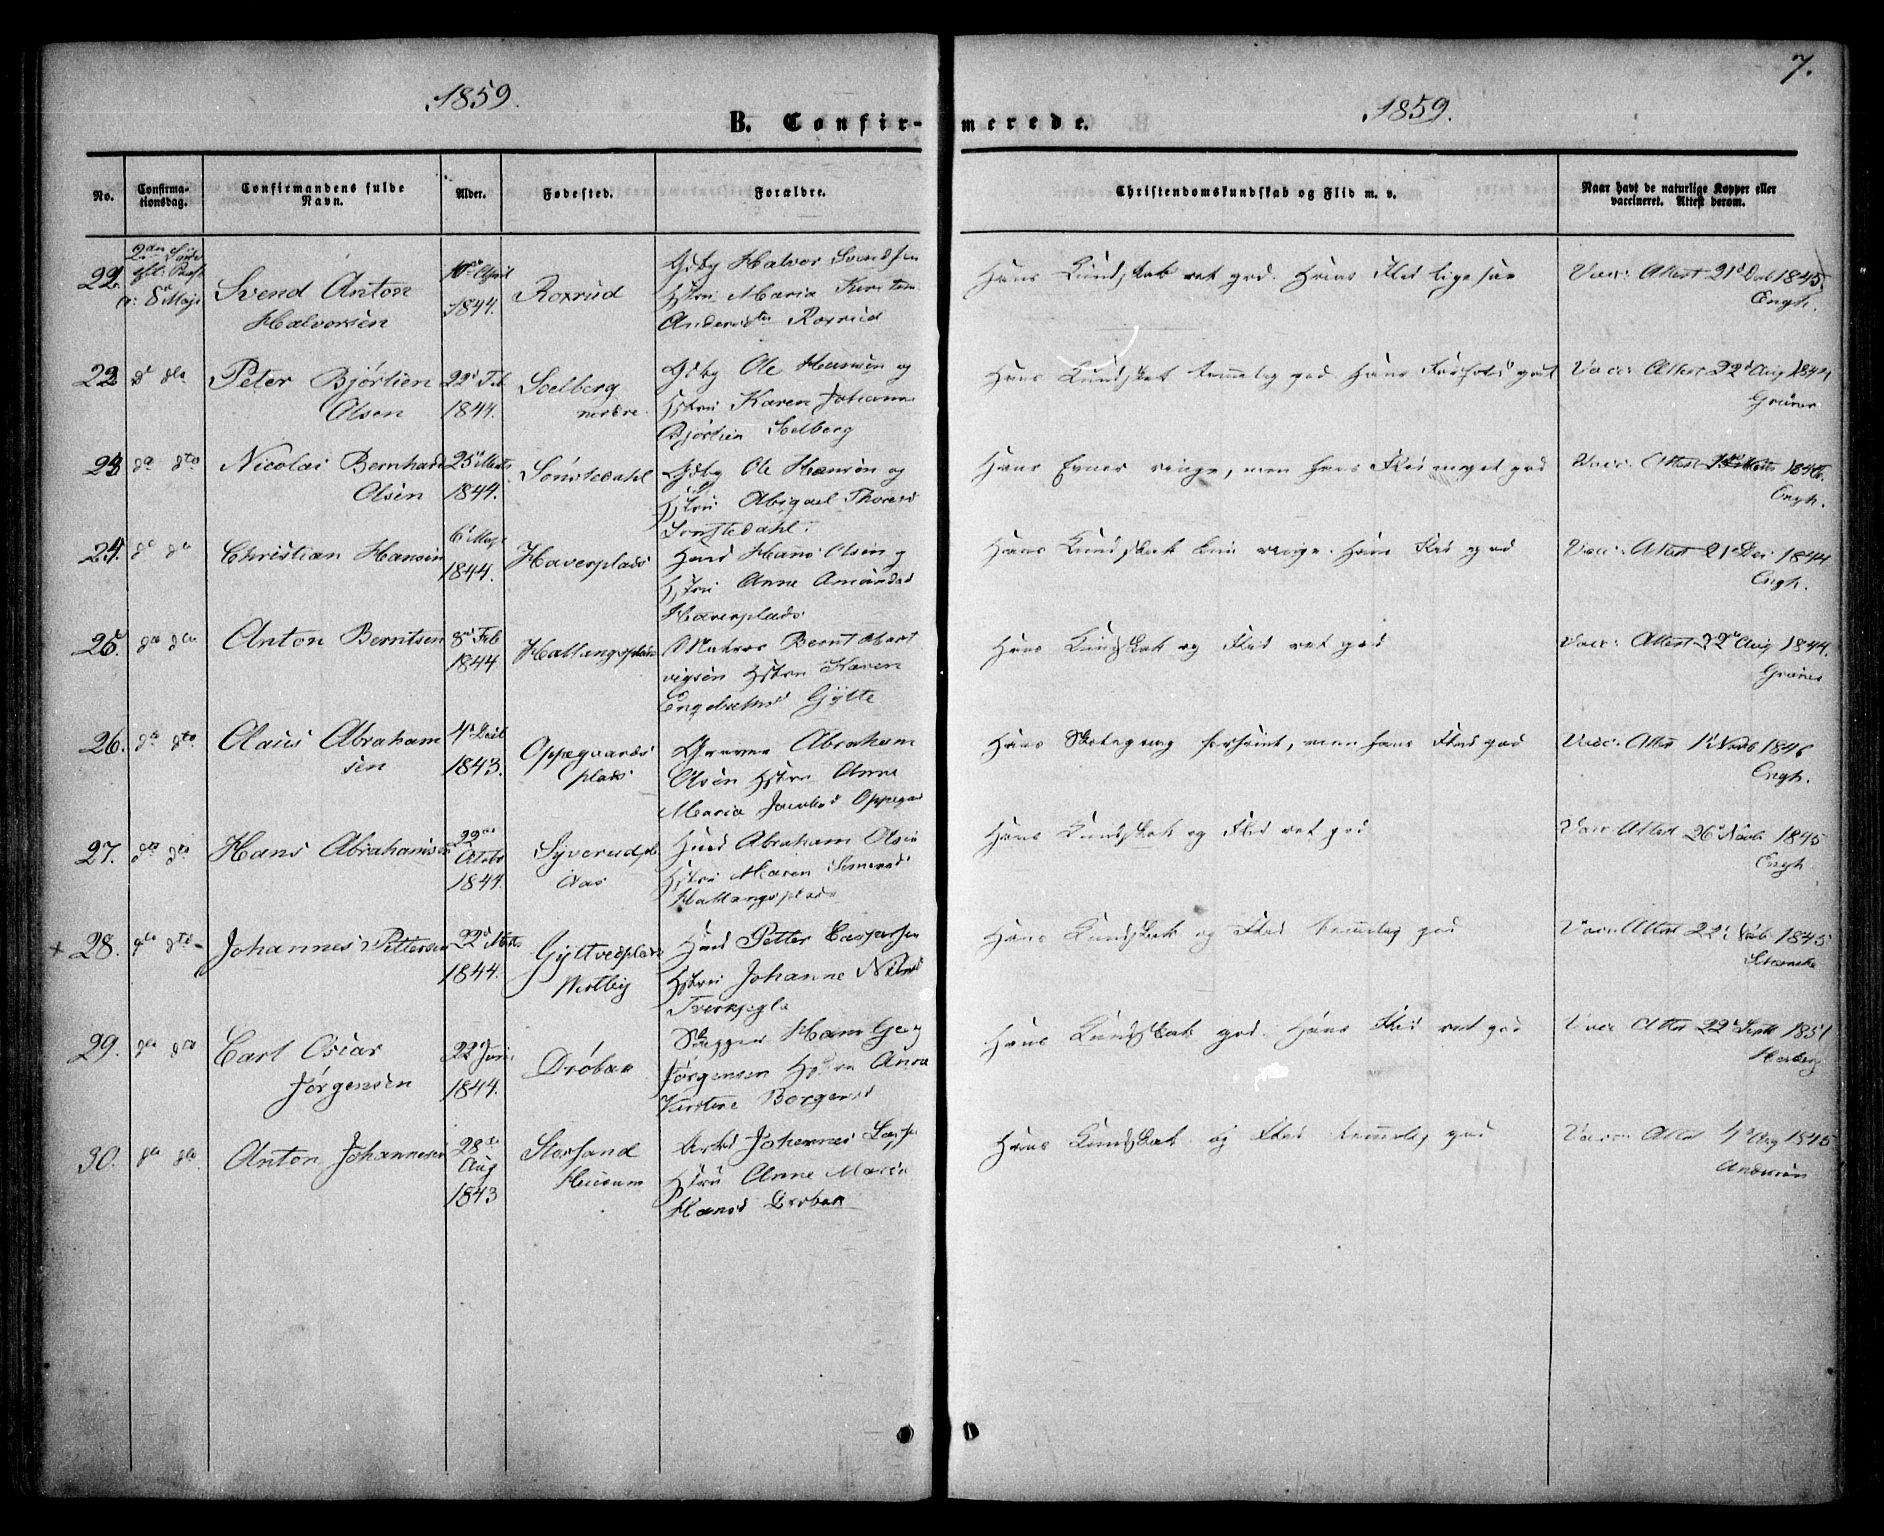 7.
1859.
1859.
B. Confir-
merede.
No.
Confirma-
tionsdag.
Confirmandens fulde
Navn.
Alder.
Fødested.
Forældre.
Christendomskundskab og Flid m. v.
Naar havt de naturlige Kopper eller
vaccineret. Attest derom.
22.
8de Maji
Svend Anton
Halvorsen
10de April
1844.
Roxrud
Gdbr Halvor Svendsen
Hstru Maria Kirstine
Andersdtr Roxrud
Hans Kundskab ret god. Hans Flid ligesaa
Vacc: Attest 21d Decb 1845
Engh.
22 do dto
Peter Bjørtien
Olsen
22d Feb
1844.
Solberg
nordre.
Gdbr Ole Hansen og
Hstru Karen Johanne
Bjørtien Solberg
Hans Kundskab temmelig god Hans Forhold godt
Vacc: Attest 22d Aug 1844
Grüner
23 do dto
Nicolai Bernhard
Olsen
25d Marts
1844.
Sønstedahl
Gdbr Ole Hansen og
Hstru Abigael Thoresd
Sønstedahl.
Hans Evner ringe, men hans Flid meget god
Vacc: Attest
Engh.
24. do do
Christian Hansen
6d Maji
1844.
Haverplads
Huusd Hans Olsen og
Hstru Anne Amundsd
Haverplads
Hans Kundskab kun ringe. Hans Flid god
Vacc: Attest 21d Dec 1844
Engh.
25. do dto
Anton Berntsen
8d Feb
1844.
Hallangsplads
Matros Bernt Hart
vigsen Hstru Karen
Engebretsd Gylte
Hans Kundskab og Flid ret god
Vacc: Attest 22d Aug 1844.
Grüner
26. do dto
Claus Abraham
sen
1843.
Oppegaards
plads
Abraham
Olsen Hstru Anne
Maria Jacobsd Oppegrd
Hans Skolegang forsømt, men hans Flid god
Vacc: Attest 1d Novb 1846
Engh.
27. do do
Hans Abrahamsen
22de
Octobr
1844.
Syverudpl.
Aas
Huusd Abraham Olsen
Hstru Maren
Hallangsplads
Hans Kundskab og Flid ret god
Vacc Attest 26d Novb 1845
Engh.
+ 28. do dto
Johannes Pettersen
22d Marts
1844.
Gyltvedplads
Vestby
Huusd Petter Caspersen
Hstru Johanne Nilsd
Hans Kundskab og Flid temmelig god
Vacc: Attest 22d 1845
29. do do
Carl Oscar
Jørgensen
22d Juni
1844.
Drøbak
Skipper Hans Georg
Jørgensen Hstru Anna
Kirstine Borgersd
Hans Kundskab god. Hans Flid ret god
Vacc Attest 22d Septb 1851
30. do do
Anton Johannesen
28de
Aug
1843
Storsand
Huusum
Arbd Johannes
Hstru Anne Maria
Hansd Drøbak
Hans Kundskab og Flid temmelig god
Vacc: Attest 4d Aug 1845
Andersen